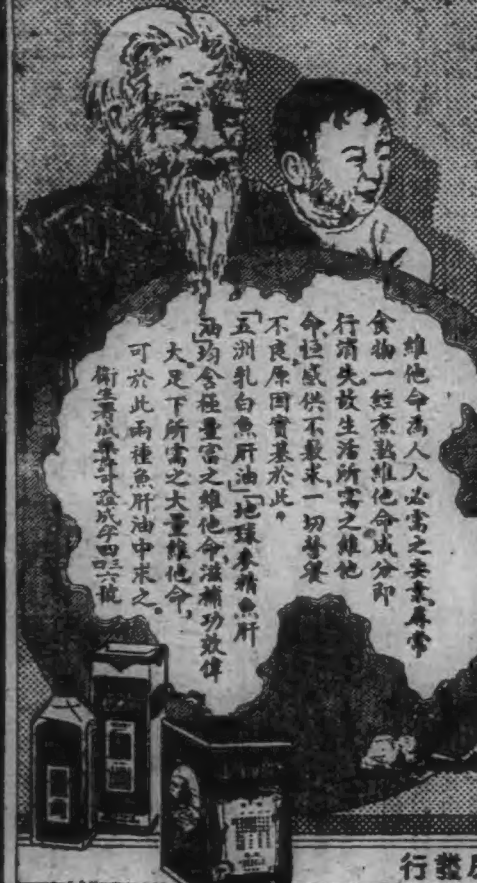 維他命為人人必需之要素尋常
食物一經煮熟維他命成分即
行消失故生活所需之維他
命恒感供不敷求一切營養
不良原因實基於此。
「五洲乳白魚肝油」「地球麥精魚肝
油」均含極豐富之維他命滋補功效偉
大足下所需之大量維他命，
可於此兩種魚肝油中求之。
衛生署成藥許可證成字四三六號
行發